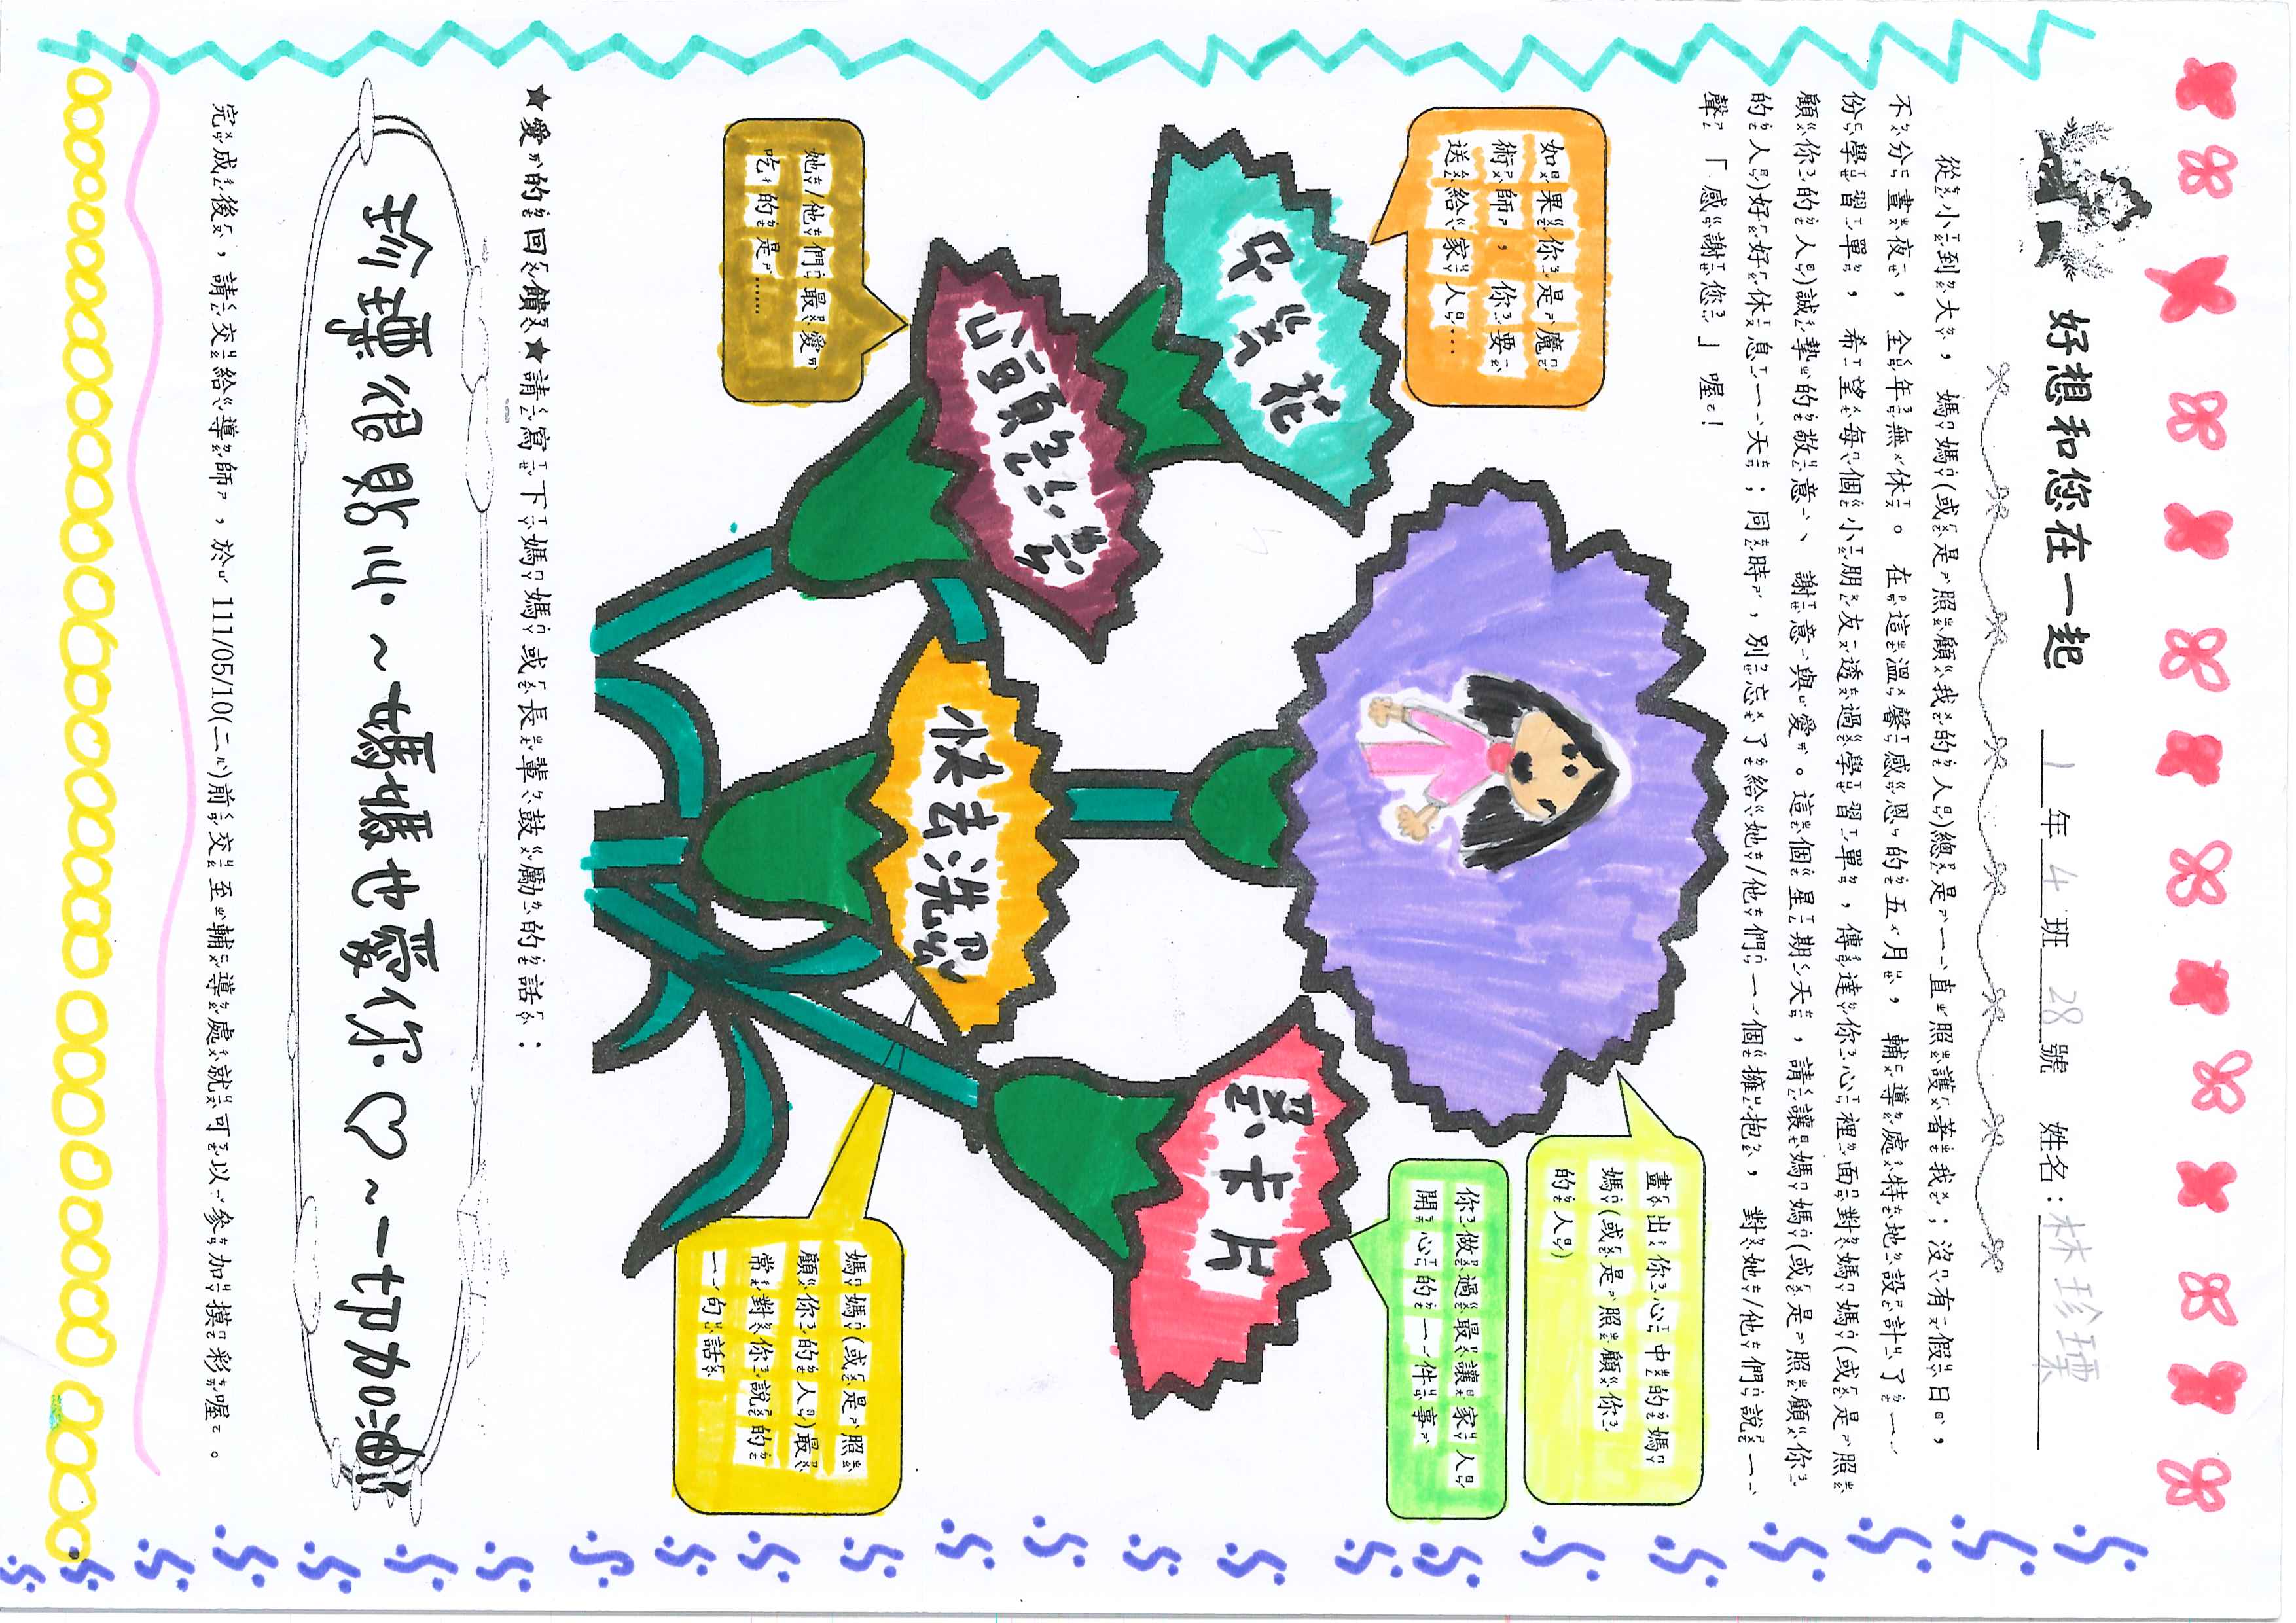 好想和您在一起　1年4班28號　姓名：林珍瓀
從小到大，媽媽(或是照顧我的人)總是一直照護著我；沒有假日，
不分晝夜，全年無休。在這溫馨感恩的五月，輔導處特地設計了一
份學習單，希望每個小朋友透過學習單，傳達你心裡面對媽媽(或是照
顧你的人)誠摯的敬意、謝意與愛。這個星期天，請讓媽媽(或是照顧你
的人)好好休息一天；同時，別忘了給她/他們一個擁抱，對她/他們說一
聲「感謝您」喔！
如果你是魔
術師，你要
送給家人…
畫出你心中的媽
媽(或是照顧你
的人)
你做過最讓家人
開心的一件事
花
卡片
她/他們最愛
吃的是……
快去洗澡
媽媽(或是照
顧你的人)最
常對你說的
一句話
★愛的回饋★請寫下媽媽或長輩鼓勵的話：
~媽媽也愛你♡~一切加油!
完成後，請交給導師，於111/05/10(二)前交至輔導處就可以參加摸彩喔。